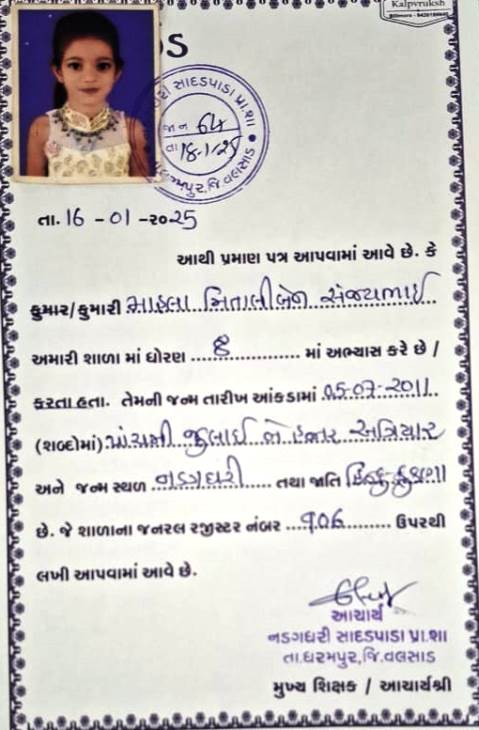 Kalpvruksh
OS
જા નં 64
તા 18-1-25
તા. 16 - 01 - ૨૦25
આથી પ્રમાણ પત્ર આપવામાં આવે છે. કે
કુમાર/કુમારી માહલા મિતાલીબેન સંજયભાઈ
અમારી શાળા માં ધોરણ ... 8 ... માં અભ્યાસ કરે છે /
કરતા હતા. તેમની જન્મ તારીખ આંકડામાં 05-07-2011
(શબ્દોમાં) પાંચમી જુલાઈ બે હજાર અગિયાર
અને જન્મ સ્થળ નડગધરી તથા જાતિ હિન્દુ કુકણા
છે. જે શાળાના જનરલ રજીસ્ટર નંબર ... 906 ... ઉપરથી
લખી આપવામાં આવે છે.
આચાર્ય
નડગધરી સાદડપાડા પ્રા.શા
તા.ધરમપુર,જિ.વલસાડ
મુખ્ય શિક્ષક / આચાર્યશ્રી